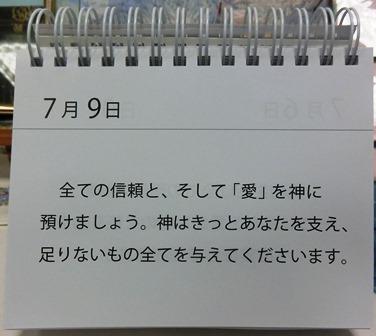 7月9日
全ての信頼と、そして「愛」を神に
預けましょう。神はきっとあなたを支え、
足りないもの全てを与えてくださいます。